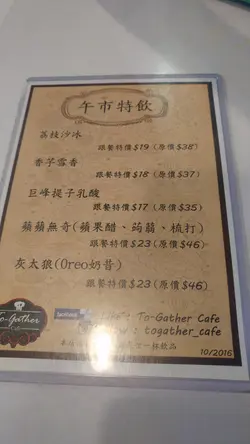 午市特飲
荔枝沙冰
跟餐特價$19 (原價$38)
香芋雪香
跟餐特價$18 (原價$37)
巨峰提子乳酸
跟餐特價$17 (原價$35)
蘋蘋無奇(蘋果醋、蒟蒻、梳打)
跟餐特價$23(原價$46)
灰太狼(Oreo奶昔)
跟餐特價$23(原價$46)
To-Gather
facebook
: To-Gather Cafe
: togather_cafe
一杯飲品
10/2016